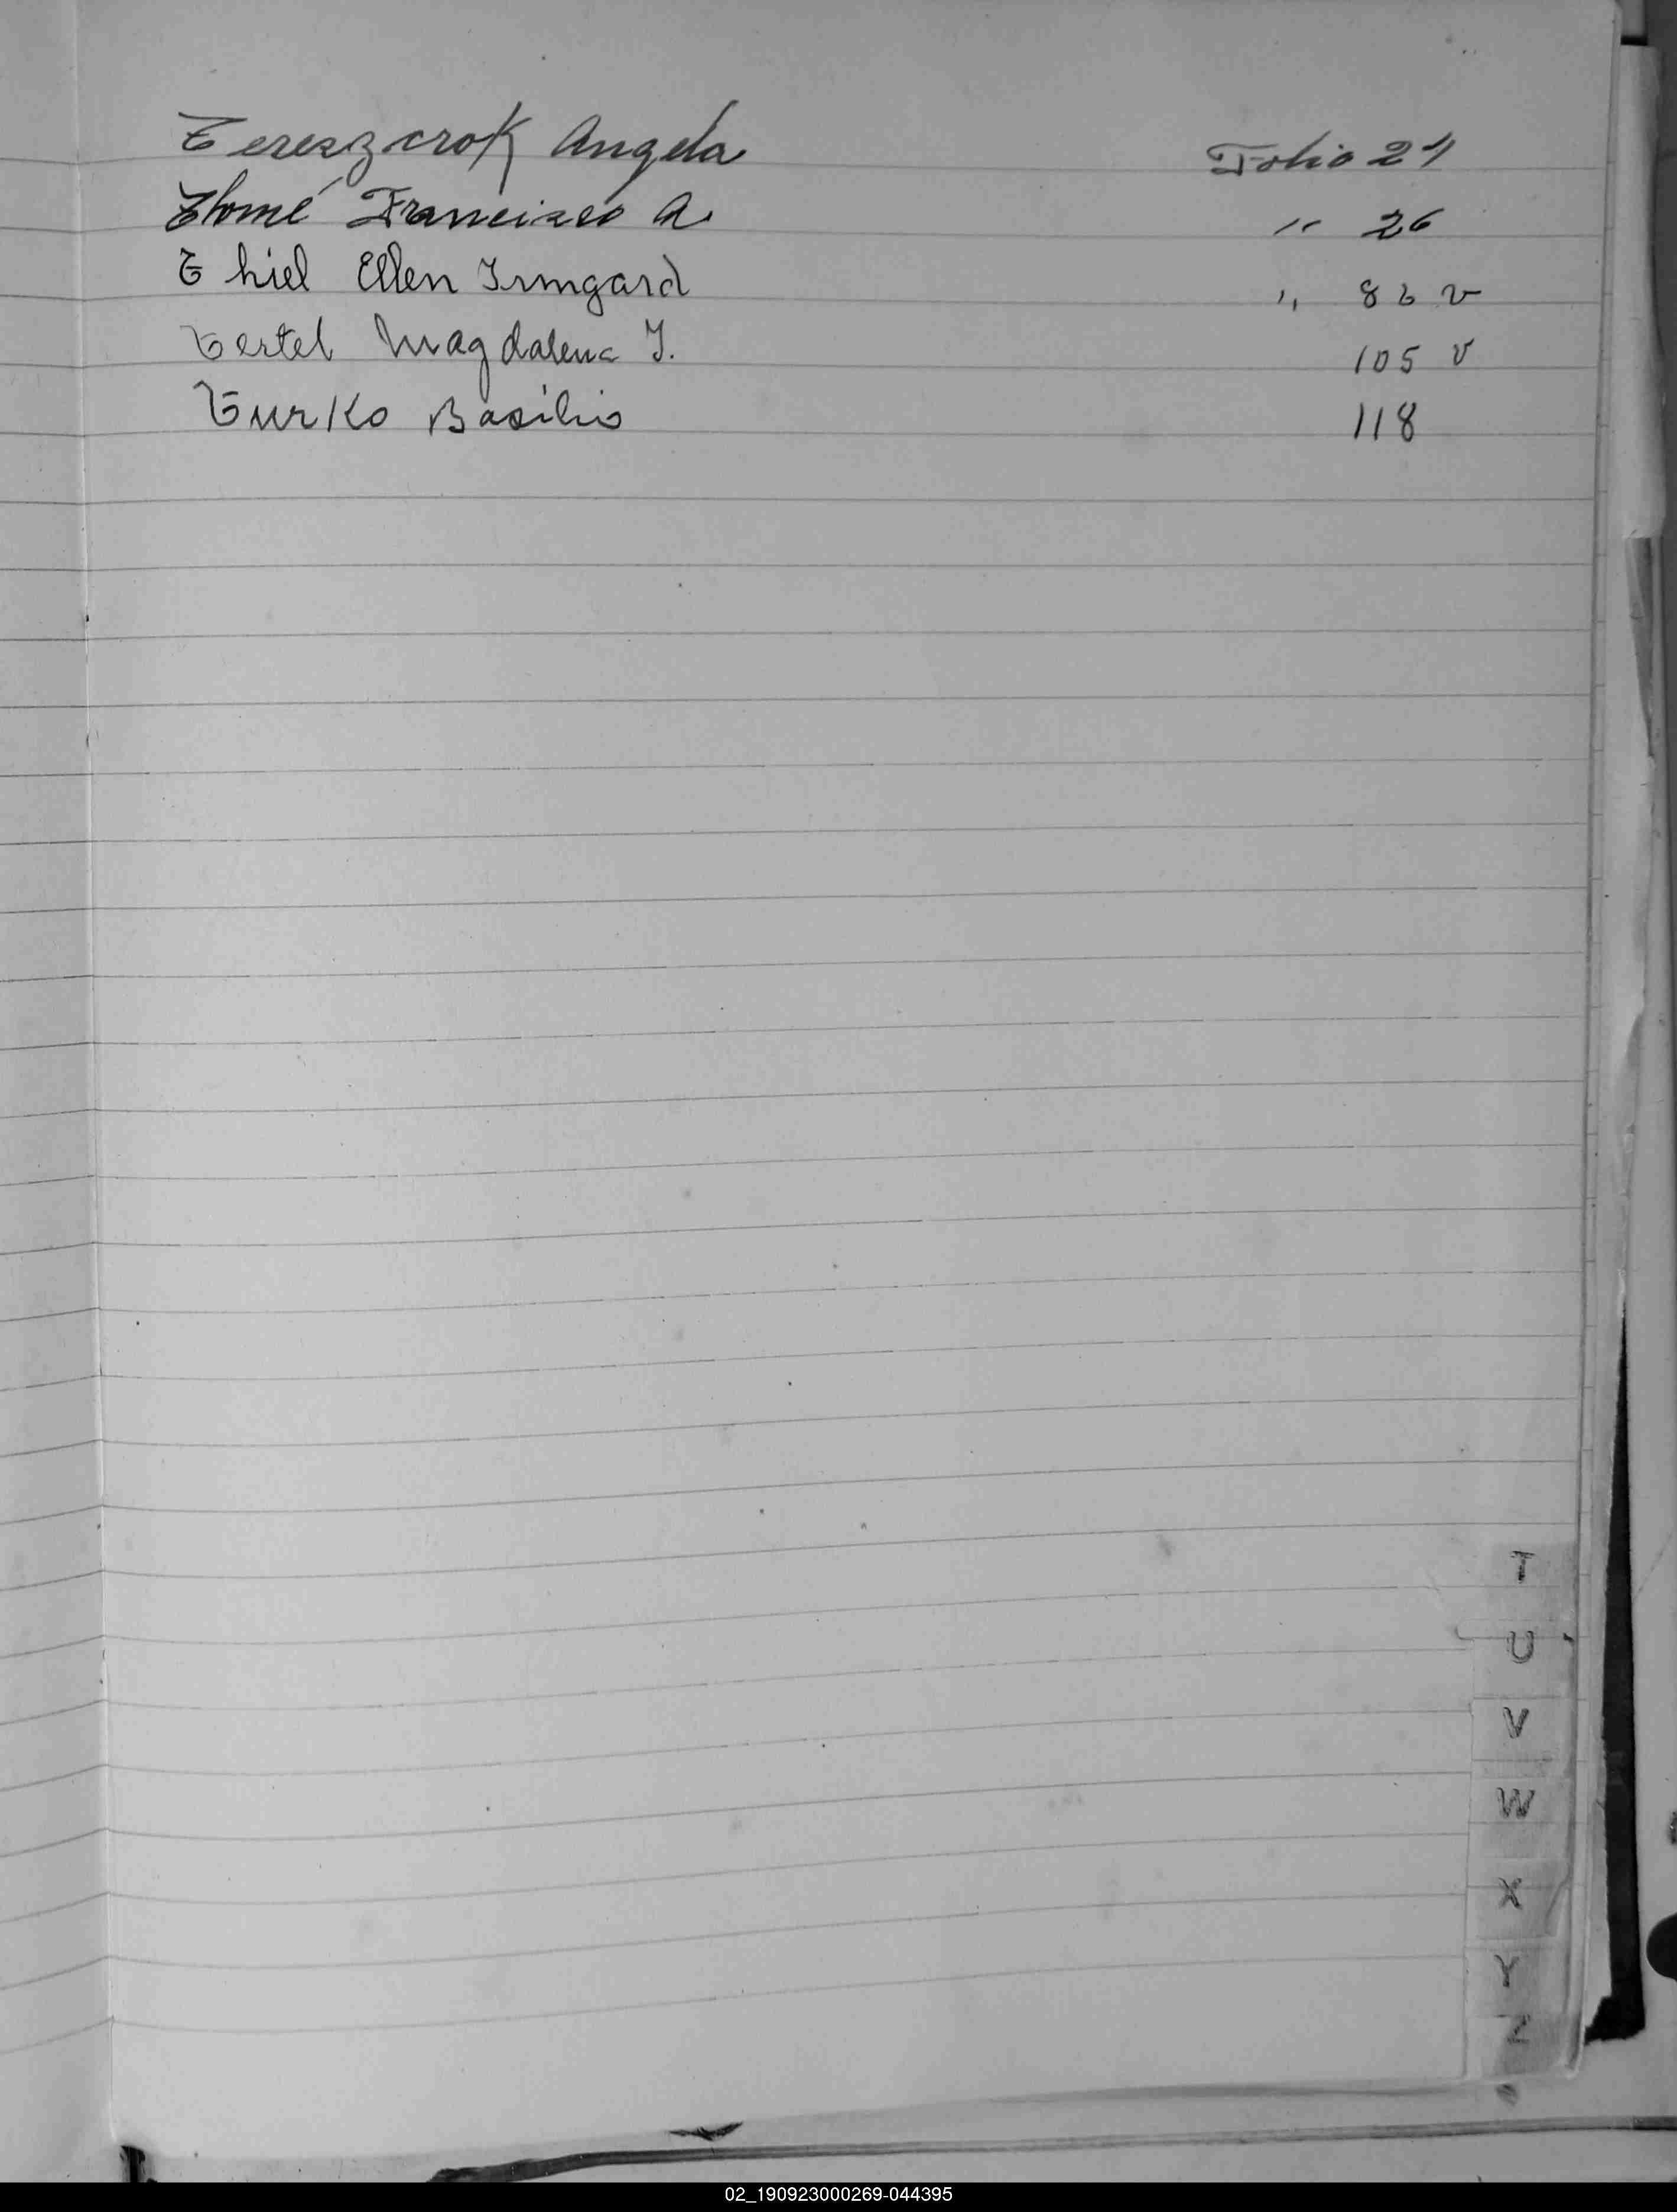 Tereszcrok Angela Folio 24
Thomé Francisco A. " 26
Thiel Ellen Irmgard " 86 v
Tertel Magdalena I. 105 v
Turko Basilio 118
T
U
V
W
X
Y
Z
02_190923000269-044395